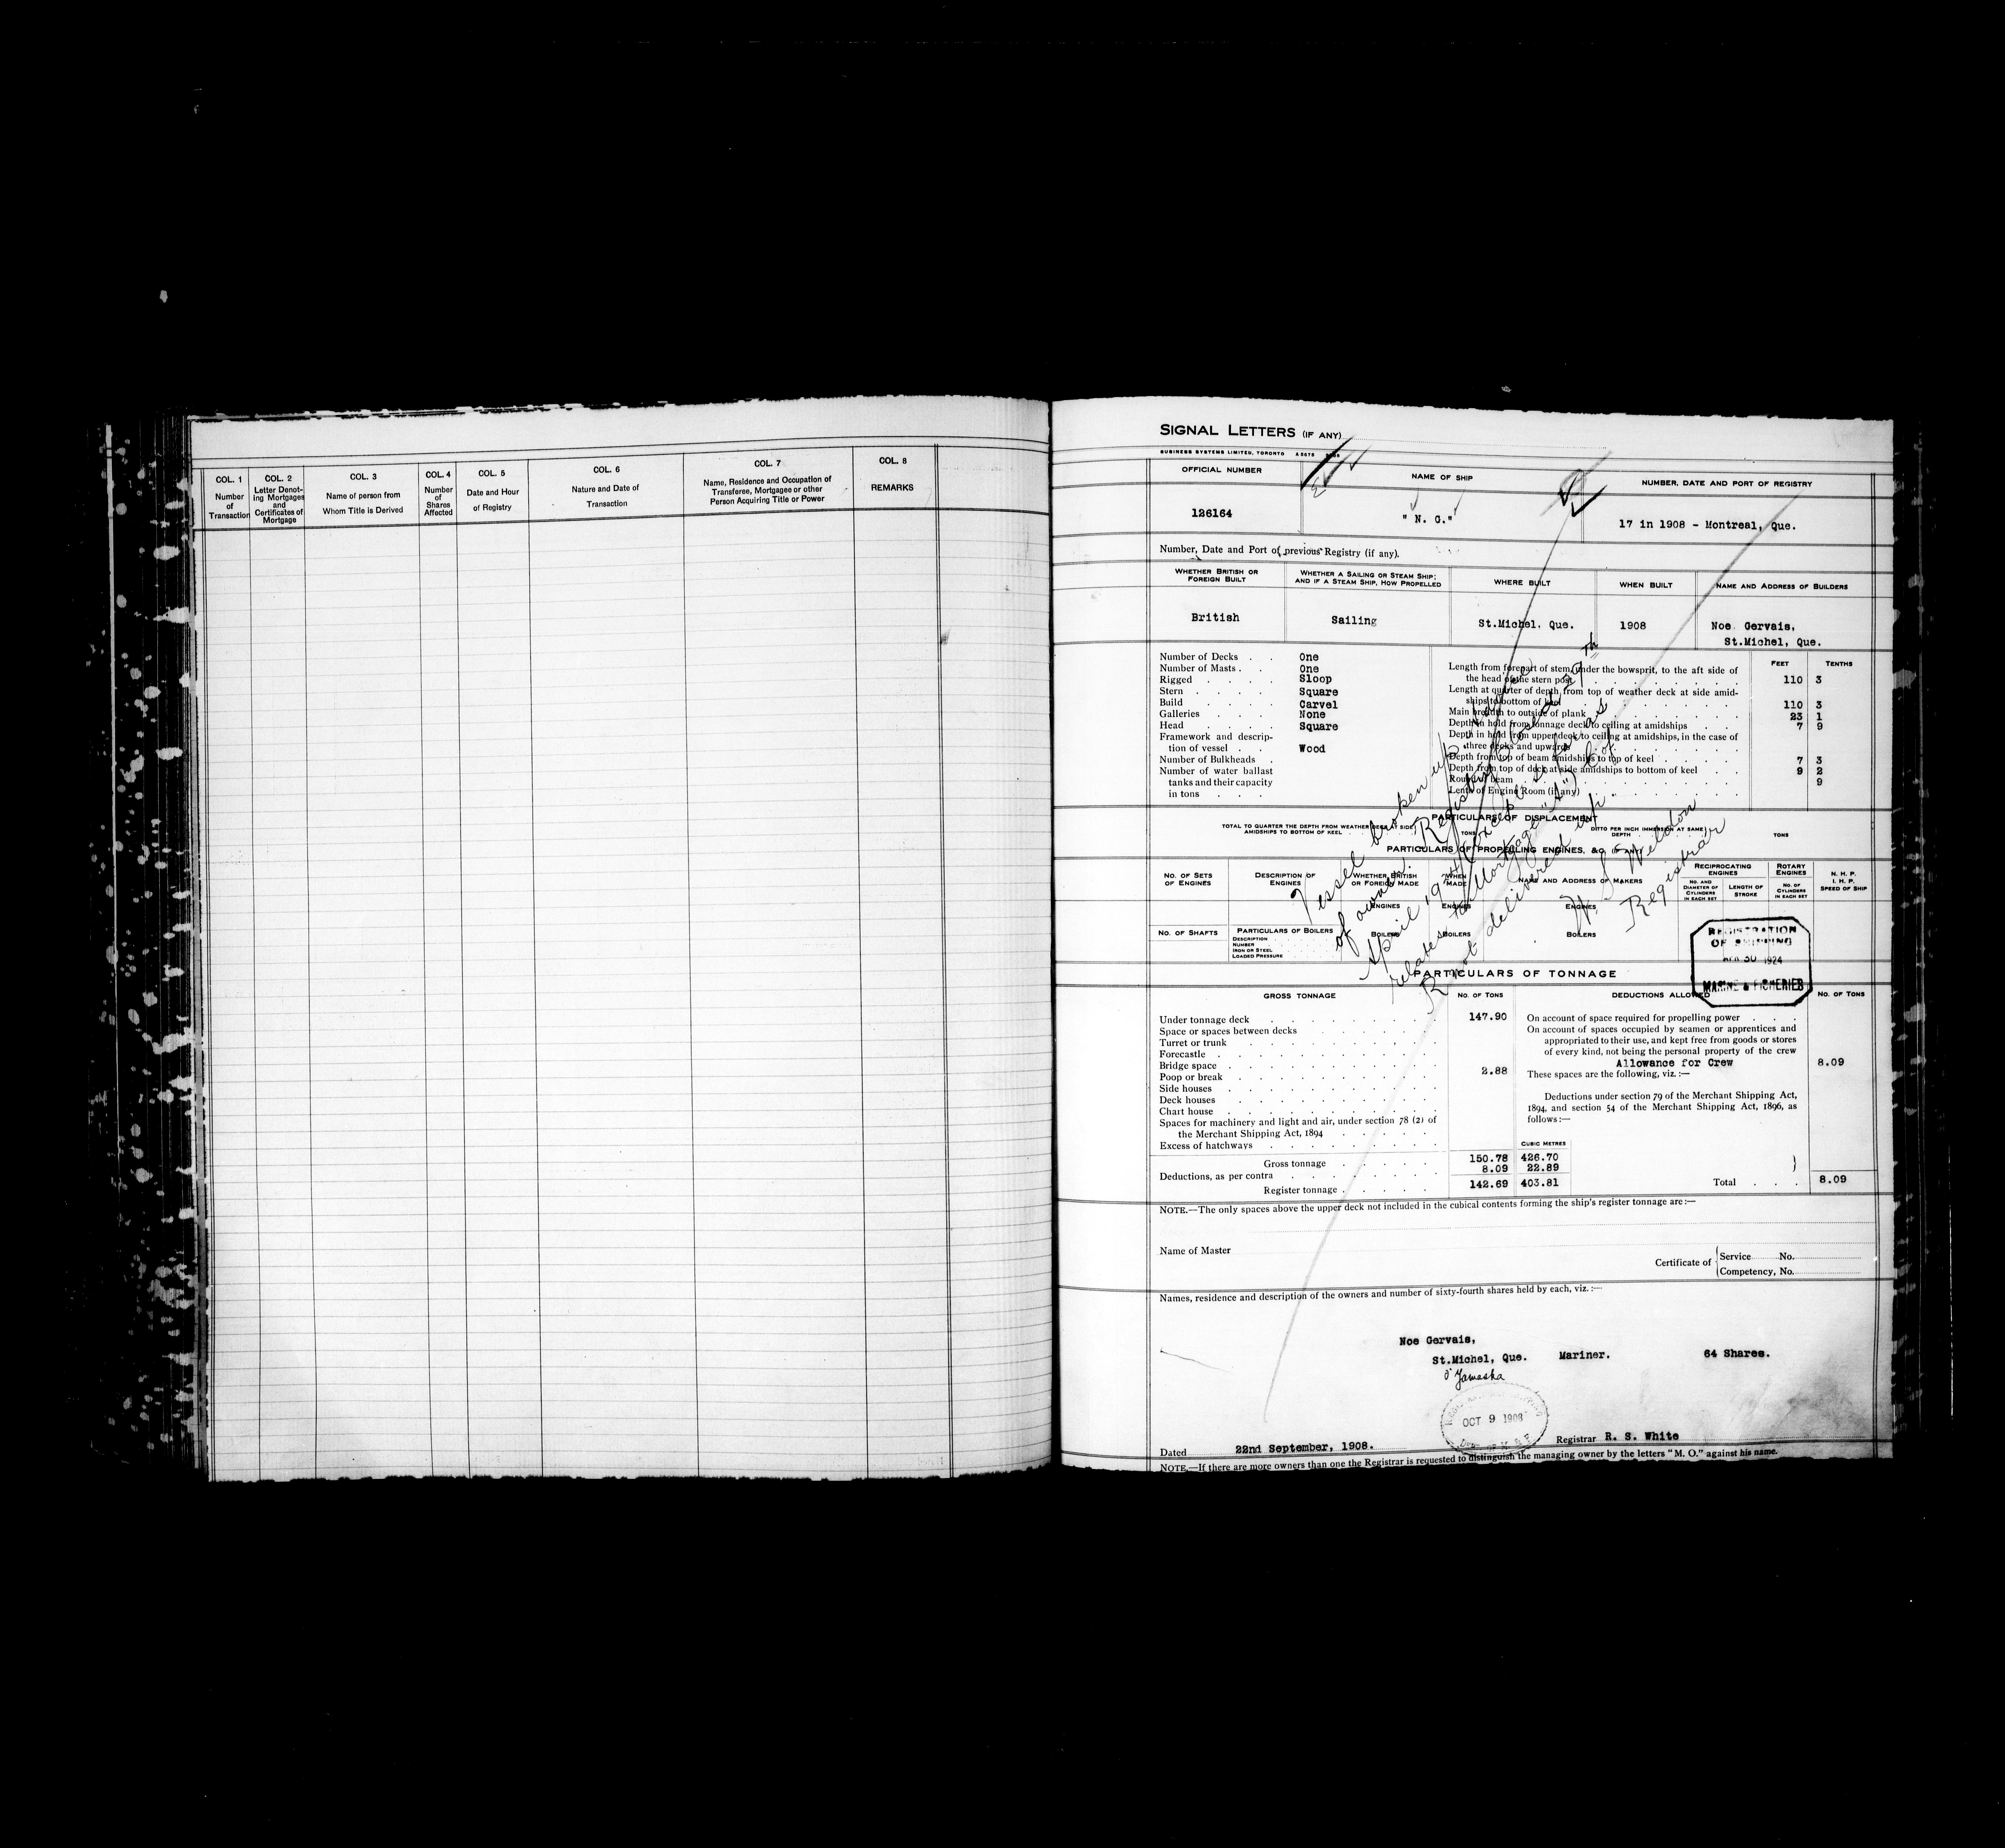 COL. 1
Number
of
Transaction
COL. 2
Letter Denot-
ing Mortgages
and
Certificates of
Mortgage
COL. 3
Name of person from
Whom Title is Derived
COL. 4
Number
of
Shares
Affected
COL. 5
Date and Hour
of Registry
COL. 6
Nature and Date of
Transaction
COL. 7
Name, Residence and Occupation of
Transferee, Mortgagee or other
Person Acquiring Title or Power
COL. 8
REMARKS
SIGNAL LETTERS (IF ANY)
BUSINESS SYSTEMS LIMITED, TORONTO
OFFICIAL NUMBER
126164
NAME OF SHIP
"N. G."
NUMBER, DATE AND PORT OF REGISTRY
17 in 1908 - Montreal, Que.
Number, Date and Port of previous Registry (if any).
WHETHER BRITISH OR
FOREIGN BUILT
British
WHETHER A SAILING OR STEAM SHIP;
AND IF A STEAM SHIP, HOW PROPELLED
Sailing
WHERE BUILT
St.Michel, Que.
WHEN BUILT
1908
NAME AND ADDRESS OF BUILDERS
Noe Gervais,
St.Michel, Que.
Number of Decks One
Number of Masts One
Rigged Sloop
Stern Square
Build Carvel
Galleries None
Head Square
Framework and descrip-
tion of vessel Wood
Number of Bulkheads
Number of water ballast
tanks and their capacity
in tons
FEET TENTHS
Length from forepart of stem, under the bowsprit, to the aft side of
the head of the stern post 110 3
Length at quarter of depth from top of weather deck at side amid-
ships to bottom of keel 110 3
Main breadth to outside of plank 23 1
Depth in hold from tonnage deck to ceiling at amidships 7 9
Depth in hold from upper deck to ceiling at amidships, in the case of
three decks and upwards
Depth from top of beam amidships to top of keel 7 3
Depth from top of deck at side amidships to bottom of keel 9 2
Round of beam 9
Lenth of Engine Room (if any)
PARTICULARS OF DISPLACEMENT
TOTAL TO QUARTER THE DEPTH FROM WEATHER DECK AT SIDE
AMIDSHIPS TO BOTTOM OF KEEL TONS
DITTO PER INCH IMMERSION AT SAME
DEPTH TONS
PARTICULARS OF PROPELLING ENGINES, &C. (IF ANY)
NO. OF SETS
OF ENGINES
DESCRIPTION OF
ENGINES
WHETHER BRITISH
OR FOREIGN MADE
WHEN
MADE
NAME AND ADDRESS OF MAKERS
RECIPROCATING
ENGINES
NO. AND
DIAMETER OF
CYLINDERS
IN EACH SET
LENGTH OF
STROKE
ROTARY
ENGINES
NO. OF
CYLINDERS
IN EACH SET
N. H. P.
I. H. P.
SPEED OF SHIP
ENGINES ENGINES ENGINES
NO. OF SHAFTS
PARTICULARS OF BOILERS
DESCRIPTION
NUMBER
IRON OR STEEL
LOADED PRESSURE
BOILERS BOILERS BOILERS
Vessel broken up
of owner. Registry closed 29th
April 1924 except so far as
relates to Mortgage "A") C of
R not delivered up.
Weldon
Registrar
REGISTRATION
OF SHIPPING
APR 30 1924
MARINE & FISHERIES
PARTICULARS OF TONNAGE
GROSS TONNAGE
NO. OF TONS
Under tonnage deck 147.90
Space or spaces between decks
Turret or trunk
Forecastle
Bridge space
Poop or break 2.88
Side houses
Deck houses
Chart house
Spaces for machinery and light and air, under section 78 (2) of
the Merchant Shipping Act, 1894
Excess of hatchways
CUBIC METRES
Gross tonnage 150.78 426.70
Deductions, as per contra 8.09 22.89
Register tonnage 142.69 403.81
DEDUCTIONS ALLOWED
NO. OF TONS
On account of space required for propelling power
On account of spaces occupied by seamen or apprentices and
appropriated to their use, and kept free from goods or stores
of every kind, not being the personal property of the crew
Allowance for Crew 8.09
These spaces are the following, viz.:—
Deductions under section 79 of the Merchant Shipping Act,
1894, and section 54 of the Merchant Shipping Act, 1896, as
follows:—
Total 8.09
NOTE.—The only spaces above the upper deck not included in the cubical contents forming the ship's register tonnage are:—
Name of Master
Certificate of
Service No.
Competency, No.
Names, residence and description of the owners and number of sixty-fourth shares held by each, viz.:—
Noe Gervais,
St.Michel, Que. Mariner. 64 Shares.
d'Yamaska
OCT 9 1908
Dated 22nd September, 1908.
Registrar R. S. White
NOTE.—If there are more owners than one the Registrar is requested to distinguish the managing owner by the letters "M. O." against his name.